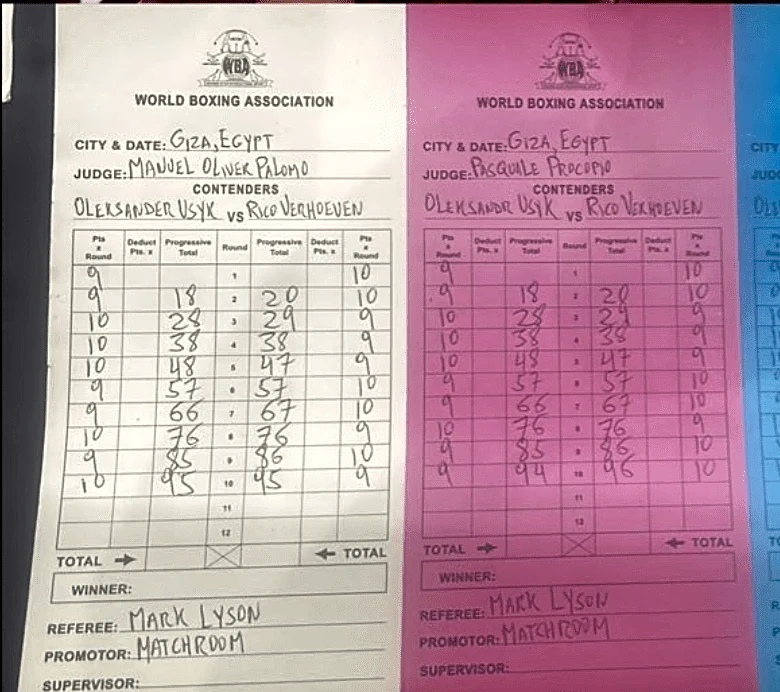 WBA
WORLD BOXING ASSOCIATION
CITY & DATE: GIZA, EGYPT
JUDGE: MANUEL OLIVER PALOMO
CONTENDERS
OLEKSANDER USYK VS RICO VERHOEVEN
Pts x Round Deduct Pts. x Progressive Total Round Progressive Total Deduct Pts. x Pts x Round
9 1 10
9 18 2 20 10
10 28 3 29 9
10 38 4 38 9
10 48 5 47 9
9 57 6 57 10
9 66 7 67 10
10 76 8 76 9
9 85 9 86 10
10 95 10 95 9
11
12
TOTAL TOTAL
WINNER:
REFEREE: MARK LYSON
PROMOTOR: MATCHROOM
SUPERVISOR:
WBA
WORLD BOXING ASSOCIATION
CITY & DATE: GIZA, EGYPT
JUDGE: PASQUALE PROCOPIO
CONTENDERS
OLEKSANDR USYK VS RICO VERHOEVEN
Pts x Round Deduct Pts. x Progressive Total Round Progressive Total Deduct Pts. x Pts x Round
9 1 10
9 18 2 20 10
10 28 3 29 9
10 38 4 38 9
10 48 5 47 9
9 57 6 57 10
9 66 7 67 10
10 76 8 76 9
9 85 9 86 10
9 94 10 96 10
11
12
TOTAL TOTAL
WINNER:
REFEREE: MARK LYSON
PROMOTOR: MATCHROOM
SUPERVISOR:
CITY